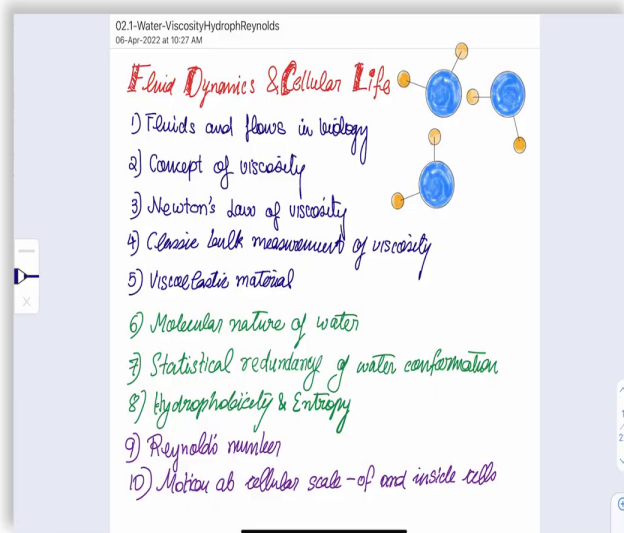 02.1-Water-ViscosityHydrophReynolds
06-Apr-2022 at 10:27 AM
Fluid Dynamics & Cellular Life
1) Fluids and flows in biology
2) Concept of viscosity
3) Newton's Law of viscosity
4) Classic bulk measurement of viscosity
5) Viscoelastic material
6) Molecular nature of water
7) Statistical redundancy of water conformation
8) Hydrophobicity & Entropy
9) Reynold's number
10) Motion at cellular scale - of and inside cells